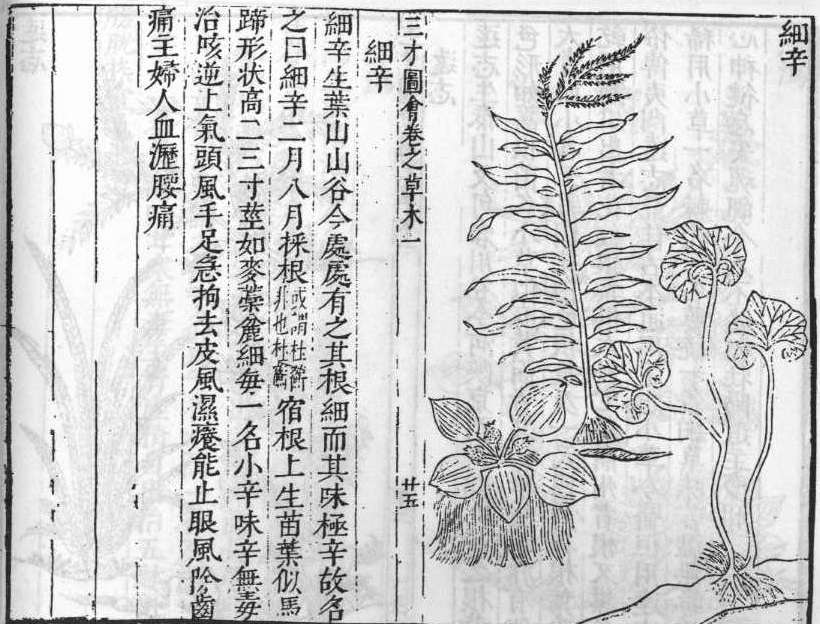 細辛
三才圖會卷之草木一
廿五
細辛
細辛生葉山山谷今處處有之其根細而其味極辛故名
之曰細辛二月八月採根或謂杜蘅非也杜蘅宿根上生苗葉似馬
蹄形状高二三寸莖如麥藁麄細每一名小辛味辛無毒
治咳逆上氣頭風手足急拘去皮風濕癢能止眼風隂齒
痛主婦人血瀝腰痛